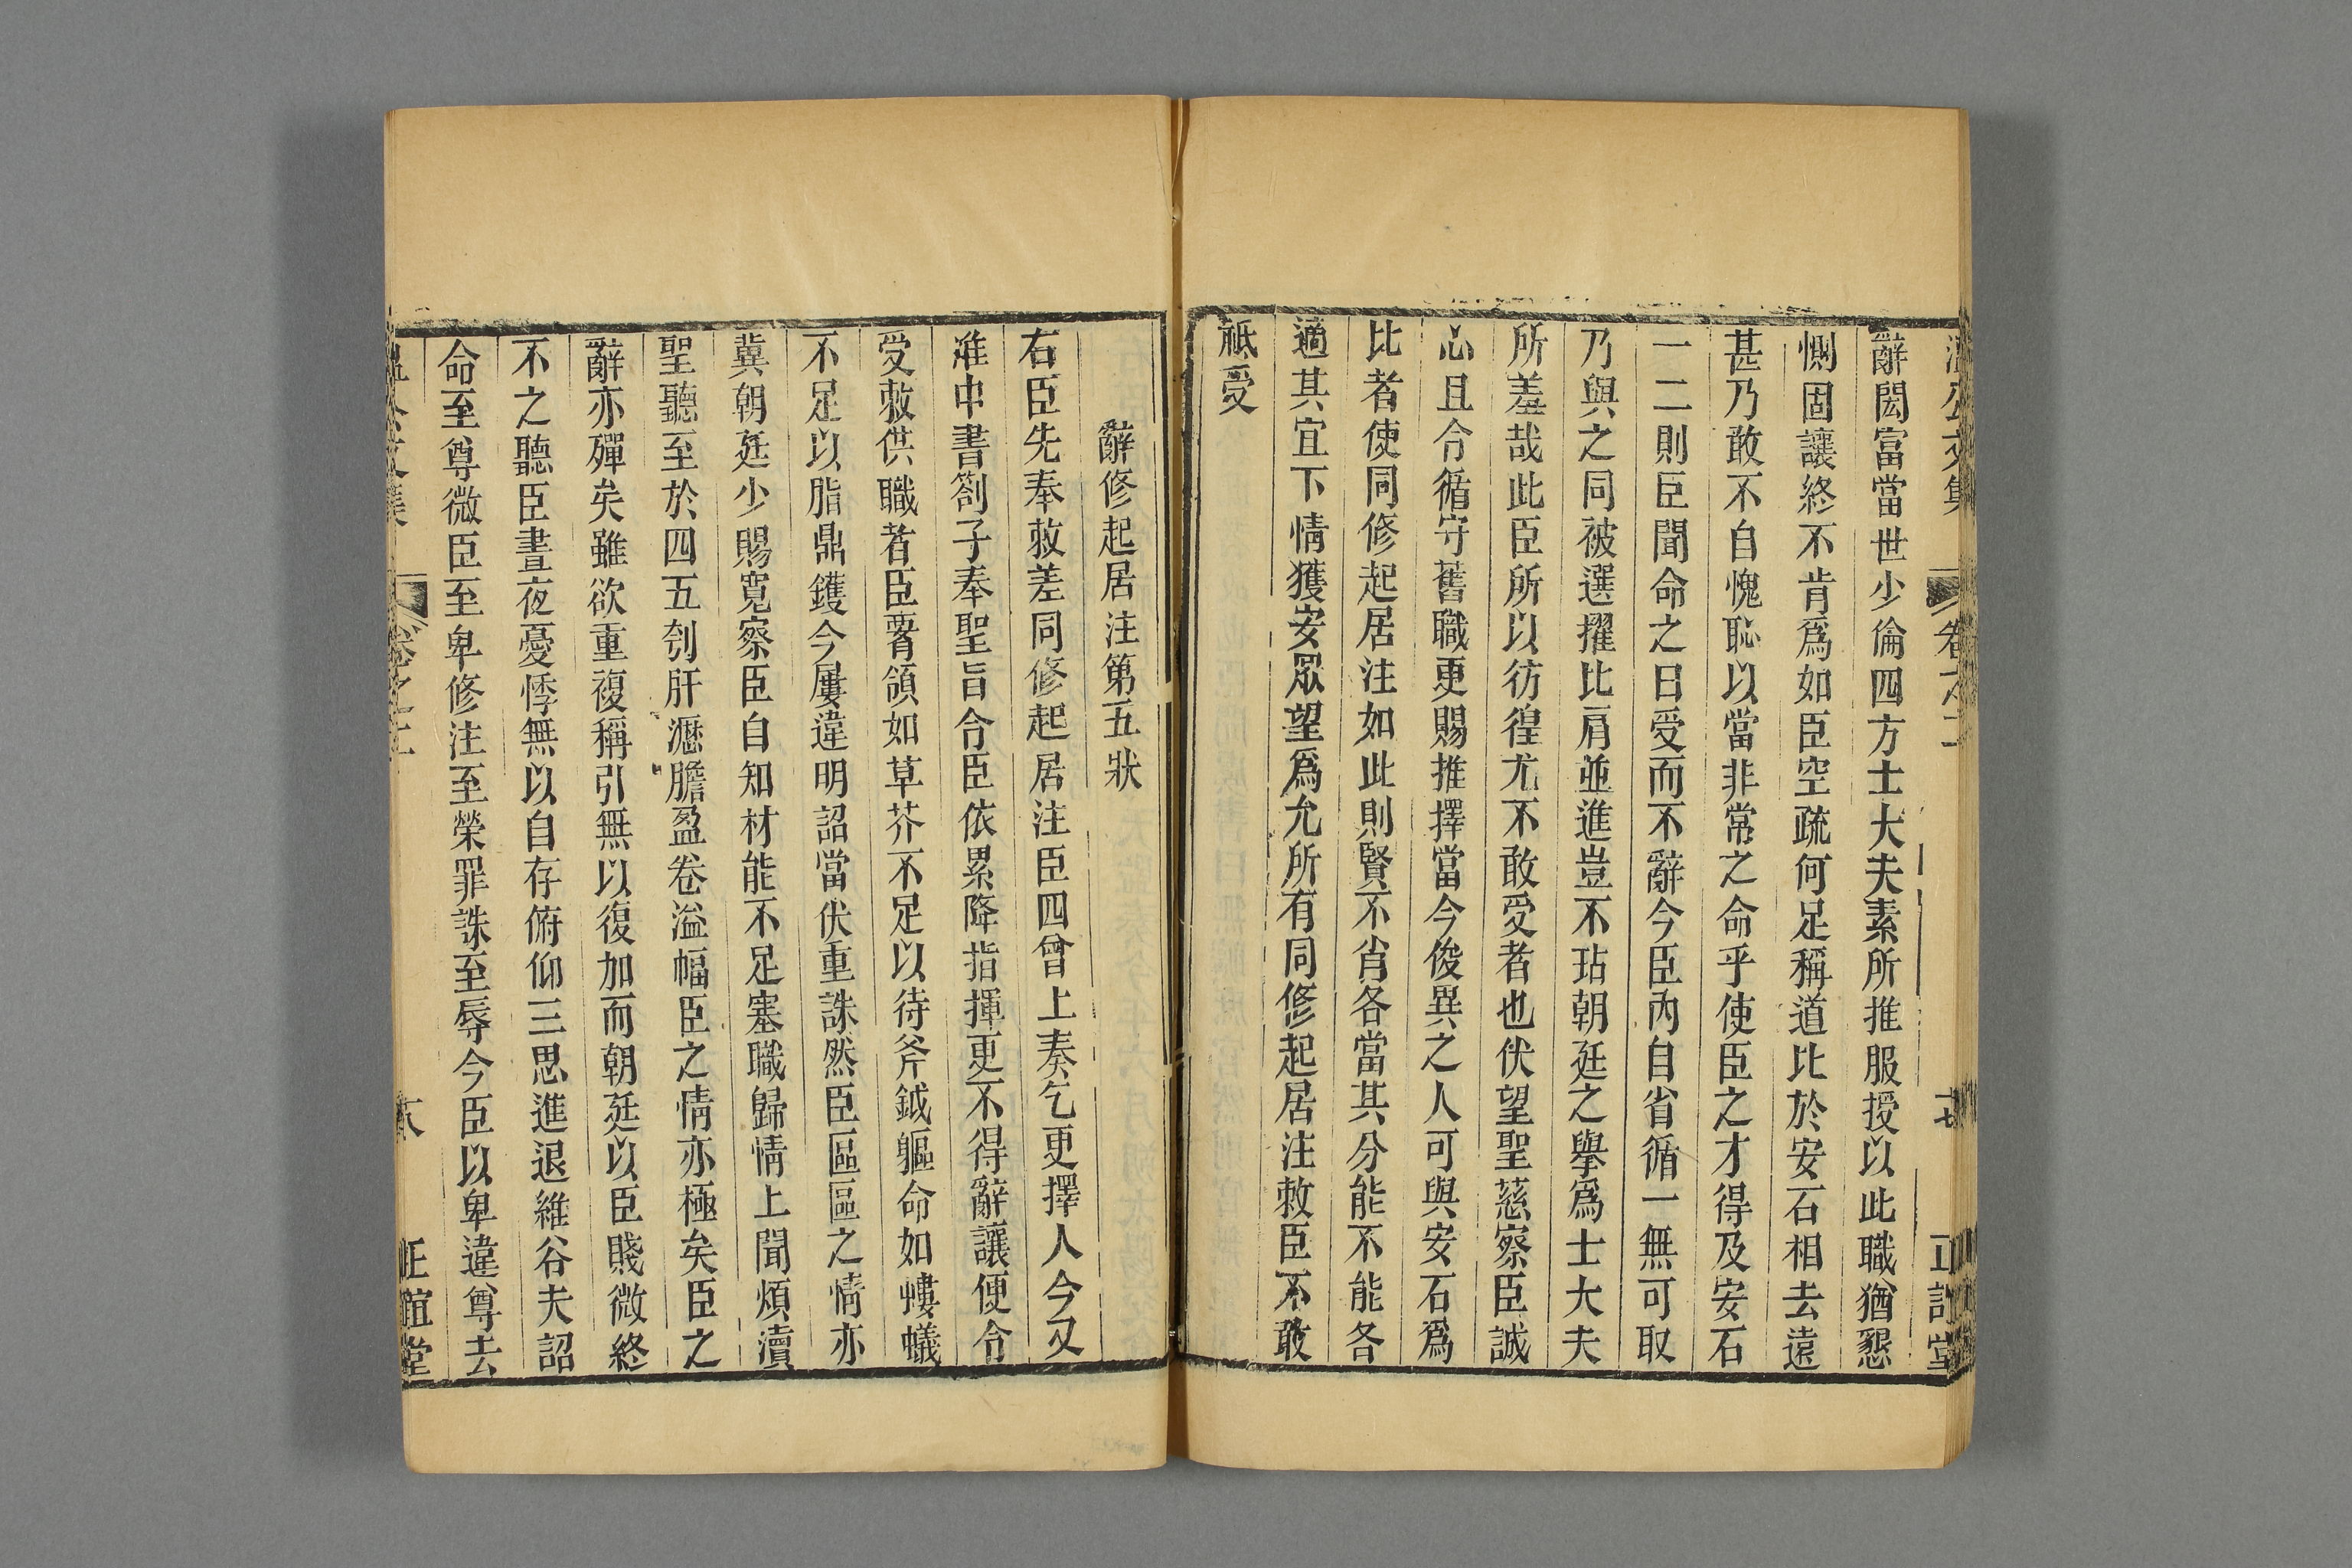 溫公文集 卷之二 十七 正誼堂
辭閎富當世少倫四方士大夫素所推服授以此職猶懇
惻固讓終不肯爲如臣空疏何足稱道比於安石相去遠
甚乃敢不自愧恥以當非常之命乎使臣之才得及安石
一二則臣聞命之日受而不辭今臣內自省循一無可取
乃與之同被選擢比肩並進豈不玷朝廷之舉爲士大夫
所羞哉此臣所以彷徨尤不敢受者也伏望聖慈察臣誠
心且令循守舊職更賜推擇當今俊異之人可與安石爲
比者使同修起居注如此則賢不肖各當其分能不能各
適其宜下情獲安眾望爲允所有同修起居注敕臣不敢
祗受
辭修起居注第五狀
右臣先奉敕差同修起居注臣四曾上奏乞更擇人今又
准中書劄子奉聖旨令臣依累降指揮更不得辭讓便令
受敕供職者臣膂領如草芥不足以待斧鉞軀命如螻蟻
不足以脂鼎鑊今屢違明詔當伏重誅然臣區區之情亦
冀朝廷少賜寬察臣自知材能不足塞職歸情上聞煩瀆
聖聽至於四五刳肝瀝膽盈卷溢幅臣之情亦極矣臣之
辭亦殫矣雖欲重複稱引無以復加而朝廷以臣賤微終
不之聽臣晝夜憂悸無以自存俯仰三思進退維谷夫詔
命至尊微臣至卑修注至榮罪誅至辱今臣以卑違尊去
溫公文集 卷之二 十八 正誼堂